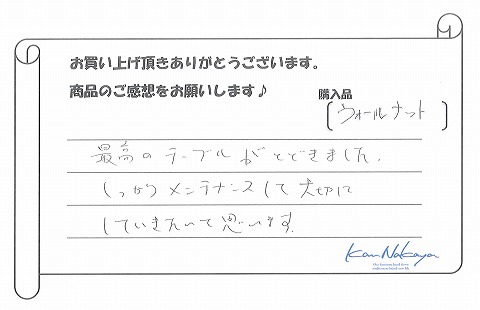 お買い上げ頂きありがとうございます。
商品のご感想をお願いします♪
購入品
[ウォールナット]
最高のテーブルがとどきました。
しっかりメンテナンスして大切に
していきたいと思います。
Kan Nakaya